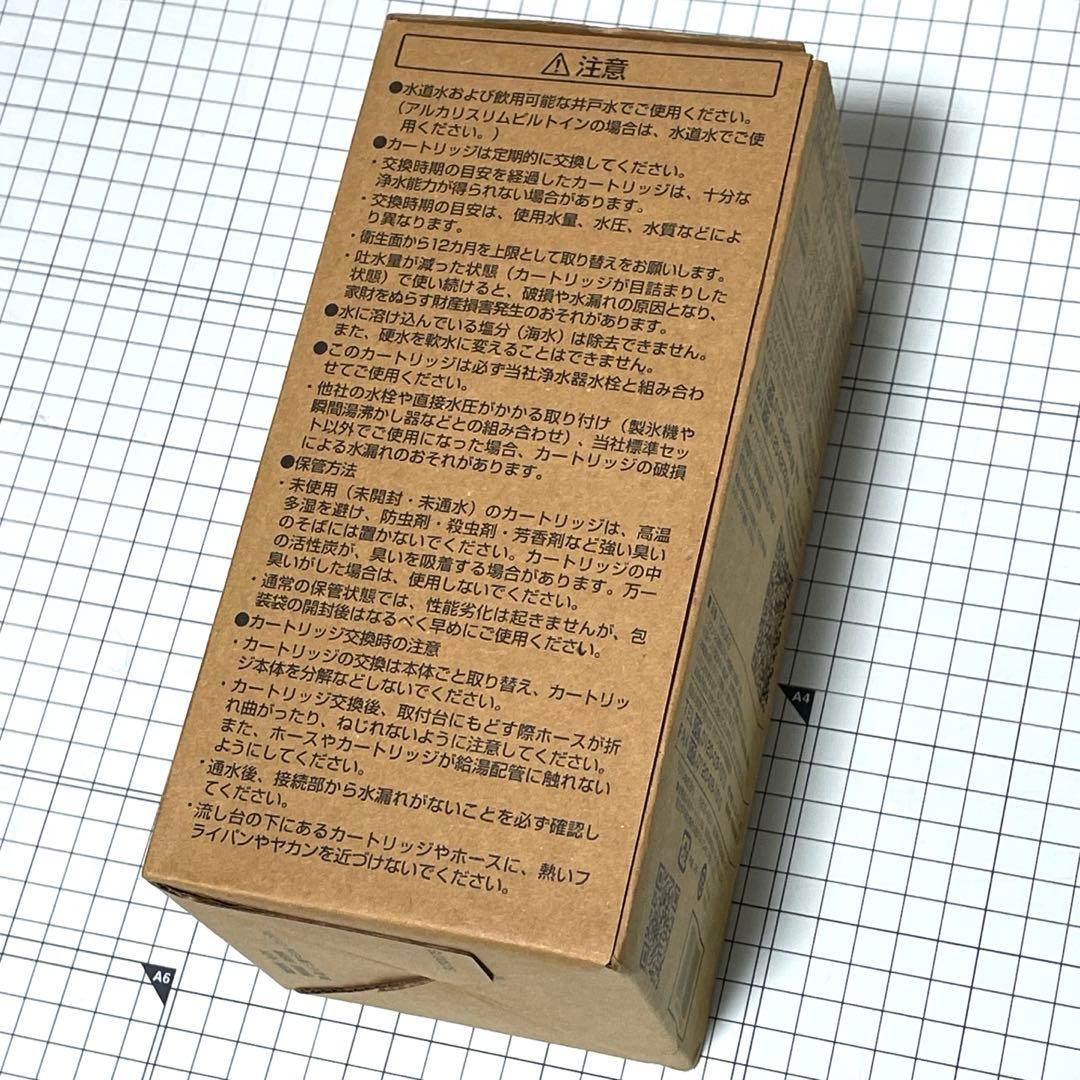 ⚠注意
●水道水および飲用可能な井戸水でご使用ください。
(アルカリスリムビルトインの場合は、水道水でご使
用ください。)
●カートリッジは定期的に交換してください。
・交換時期の目安を経過したカートリッジは、十分な
浄水能力が得られない場合があります。
・交換時期の目安は、使用水量、水圧、水質などによ
り異なります。
・衛生面から12カ月を上限として取り替えをお願いします。
・吐水量が減った状態(カートリッジが目詰まりした
状態)で使い続けると、破損や水漏れの原因となり、
家財をぬらす財産損害発生のおそれがあります。
●水に溶け込んでいる塩分(海水)は除去できません。
また、硬水を軟水に変えることはできません。
●このカートリッジは必ず当社浄水器水栓と組み合わ
せてご使用ください。
・他社の水栓や直接水圧がかかる取り付け(製氷機や
瞬間湯沸かし器などとの組み合わせ)、当社標準セッ
ト以外でご使用になった場合、カートリッジの破損
による水漏れのおそれがあります。
●保管方法
・未使用(未開封・未通水)のカートリッジは、高温
多湿を避け、防虫剤・殺虫剤・芳香剤など強い臭い
のそばには置かないでください。カートリッジの中
の活性炭が、臭いを吸着する場合があります。万一
臭いがした場合は、使用しないでください。
・通常の保管状態では、性能劣化は起きませんが、包
装袋の開封後はなるべく早めにご使用ください。
●カートリッジ交換時の注意
・カートリッジの交換は本体ごと取り替え、カートリッ
ジ本体を分解などしないでください。
・カートリッジ交換後、取付台にもどす際ホースが折
れ曲がったり、ねじれないように注意してください。
また、ホースやカートリッジが給湯配管に触れない
ようにしてください。
・通水後、接続部から水漏れがないことを必ず確認し
てください。
・流し台の下にあるカートリッジやホースに、熱いフ
ライパンやヤカンを近づけないでください。
A4
A6